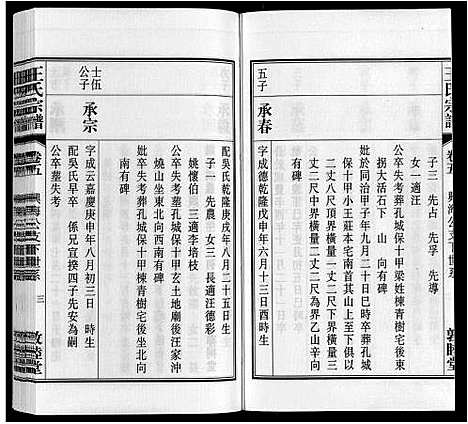 王氏宗譜
卷五
子三 先占 先孚 先導
女一適汪
公卒失考葬孔城保十甲梁姓棟青樹宅後東
拐大活石下 山 向有碑
妣同治甲子年九月二十日巳時卒葬孔城
保十甲小王莊本宅南首其山上至下俱以
一丈二尺為界橫量一丈二尺下界橫量三
丈二尺中界橫量二丈二尺為界乙山辛向
有碑
五子 承春
字成德乾隆戊申年六月十三日酉時生
配吳氏乾隆庚戌年八月二十五日生
子一 先農 女三長適汪德彩
姚懷伯 三適李培枝
公卒失考葬孔城保十甲玄土地廟後汪家沖
燒山坐東北向西南有碑
妣卒失考葬孔城保十甲棟青樹宅後坐北向
南有碑
士伍公子 承宗
字成云嘉慶庚申年八月初三日 時生
配吳氏早卒 係兄宣揆四子先安為嗣
公卒葬失考
王氏宗譜
卷五
興海公支下世系
三
敦睦堂
敦睦堂